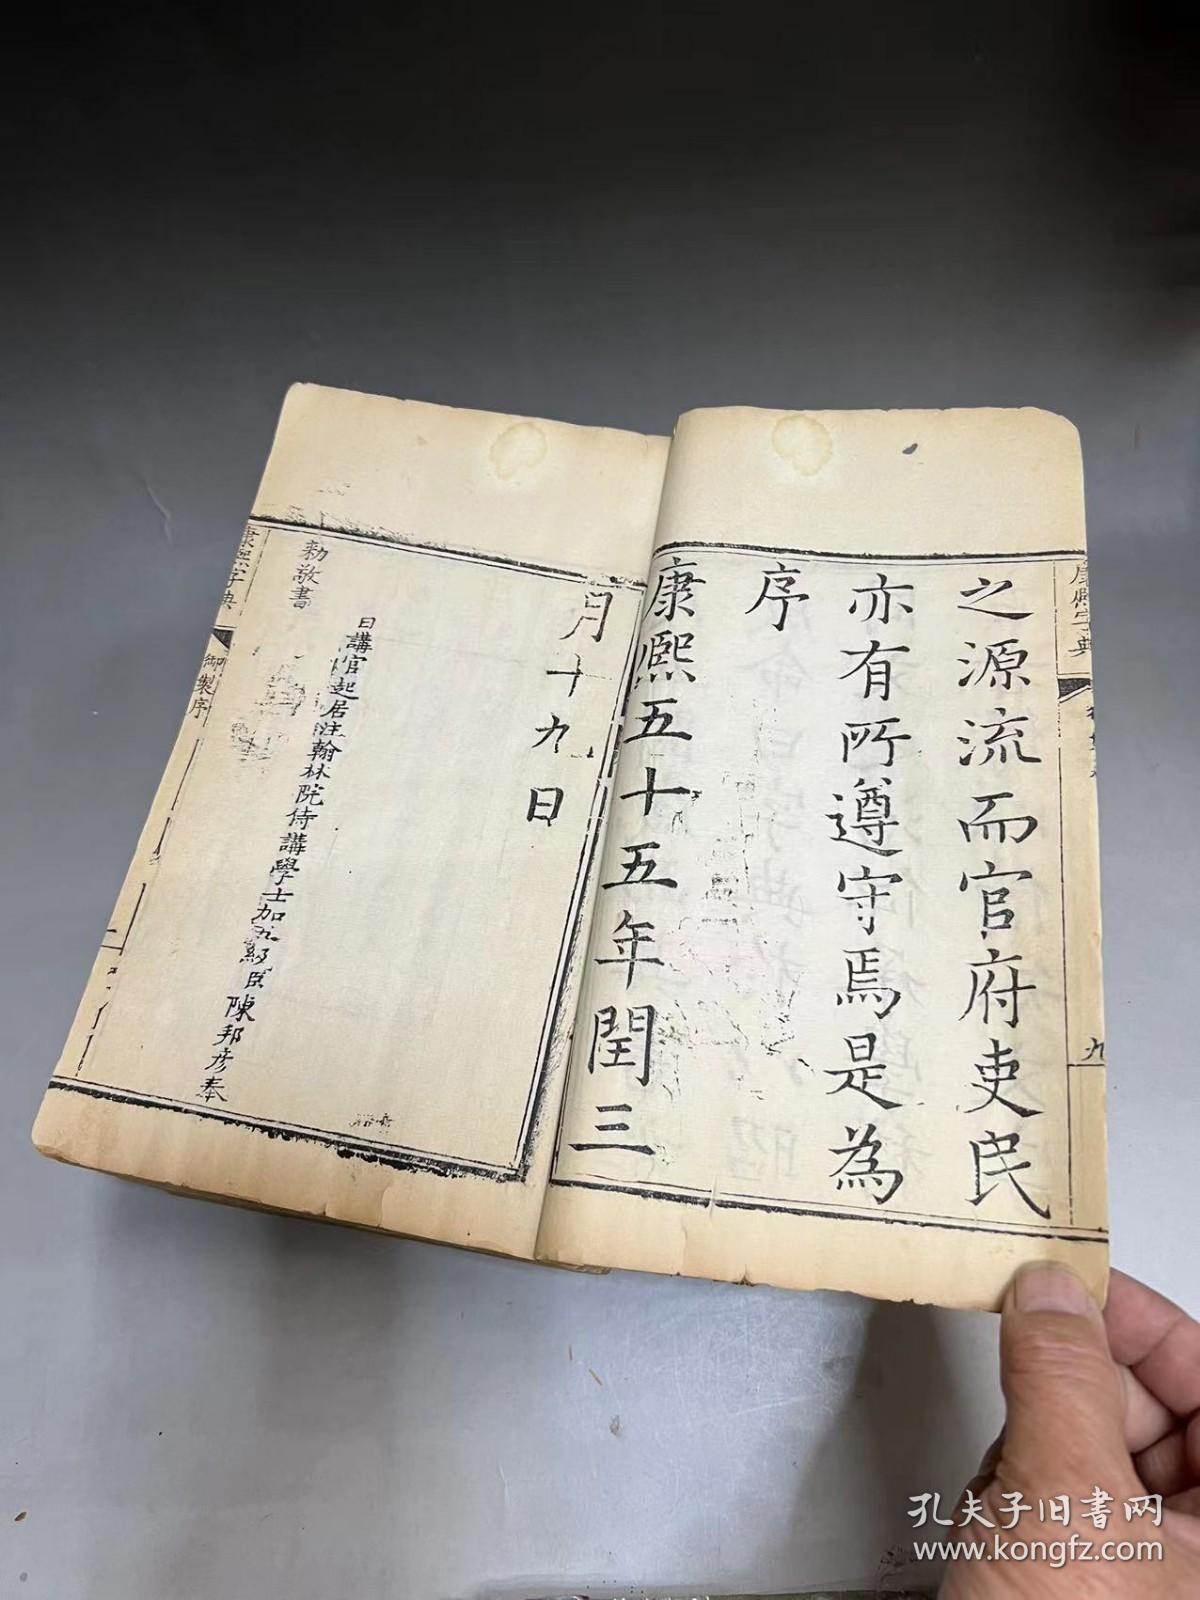 之源流而官府吏民
亦有所遵守焉是為
序
康熙五十五年閏三
月十九日
日講官起居注翰林院侍講學士加五級臣陳邦彥奉
勅敬書
康熙字典
御製序
康熙字典
九
孔夫子旧书网
www.kongfz.com